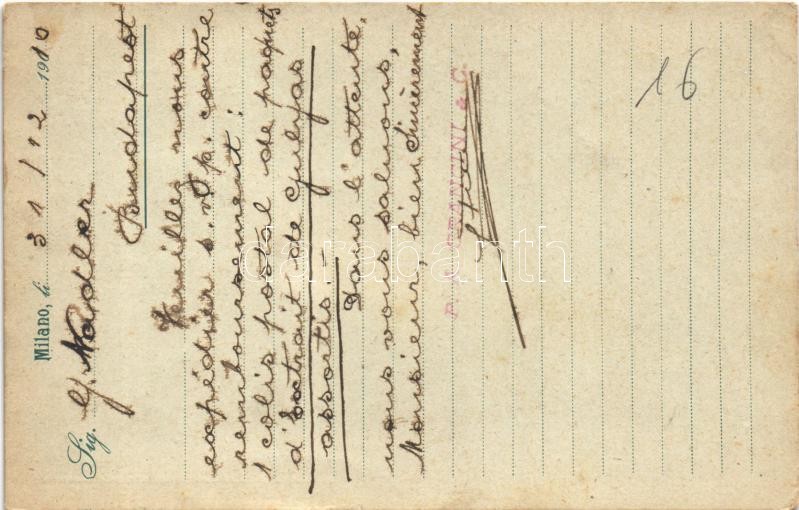 Milano, li 31/12 1910
Sig. G. Nadler
Budapest
Veuillez nous
expédier s.v.p. contre
remboursement:
1 colis postal de paquets
d'Extrait de Gulyas
assortis.-
Dans l'attente,
nous vous saluons,
Monsieur, bien sincèrement
& C.
16
darabanth